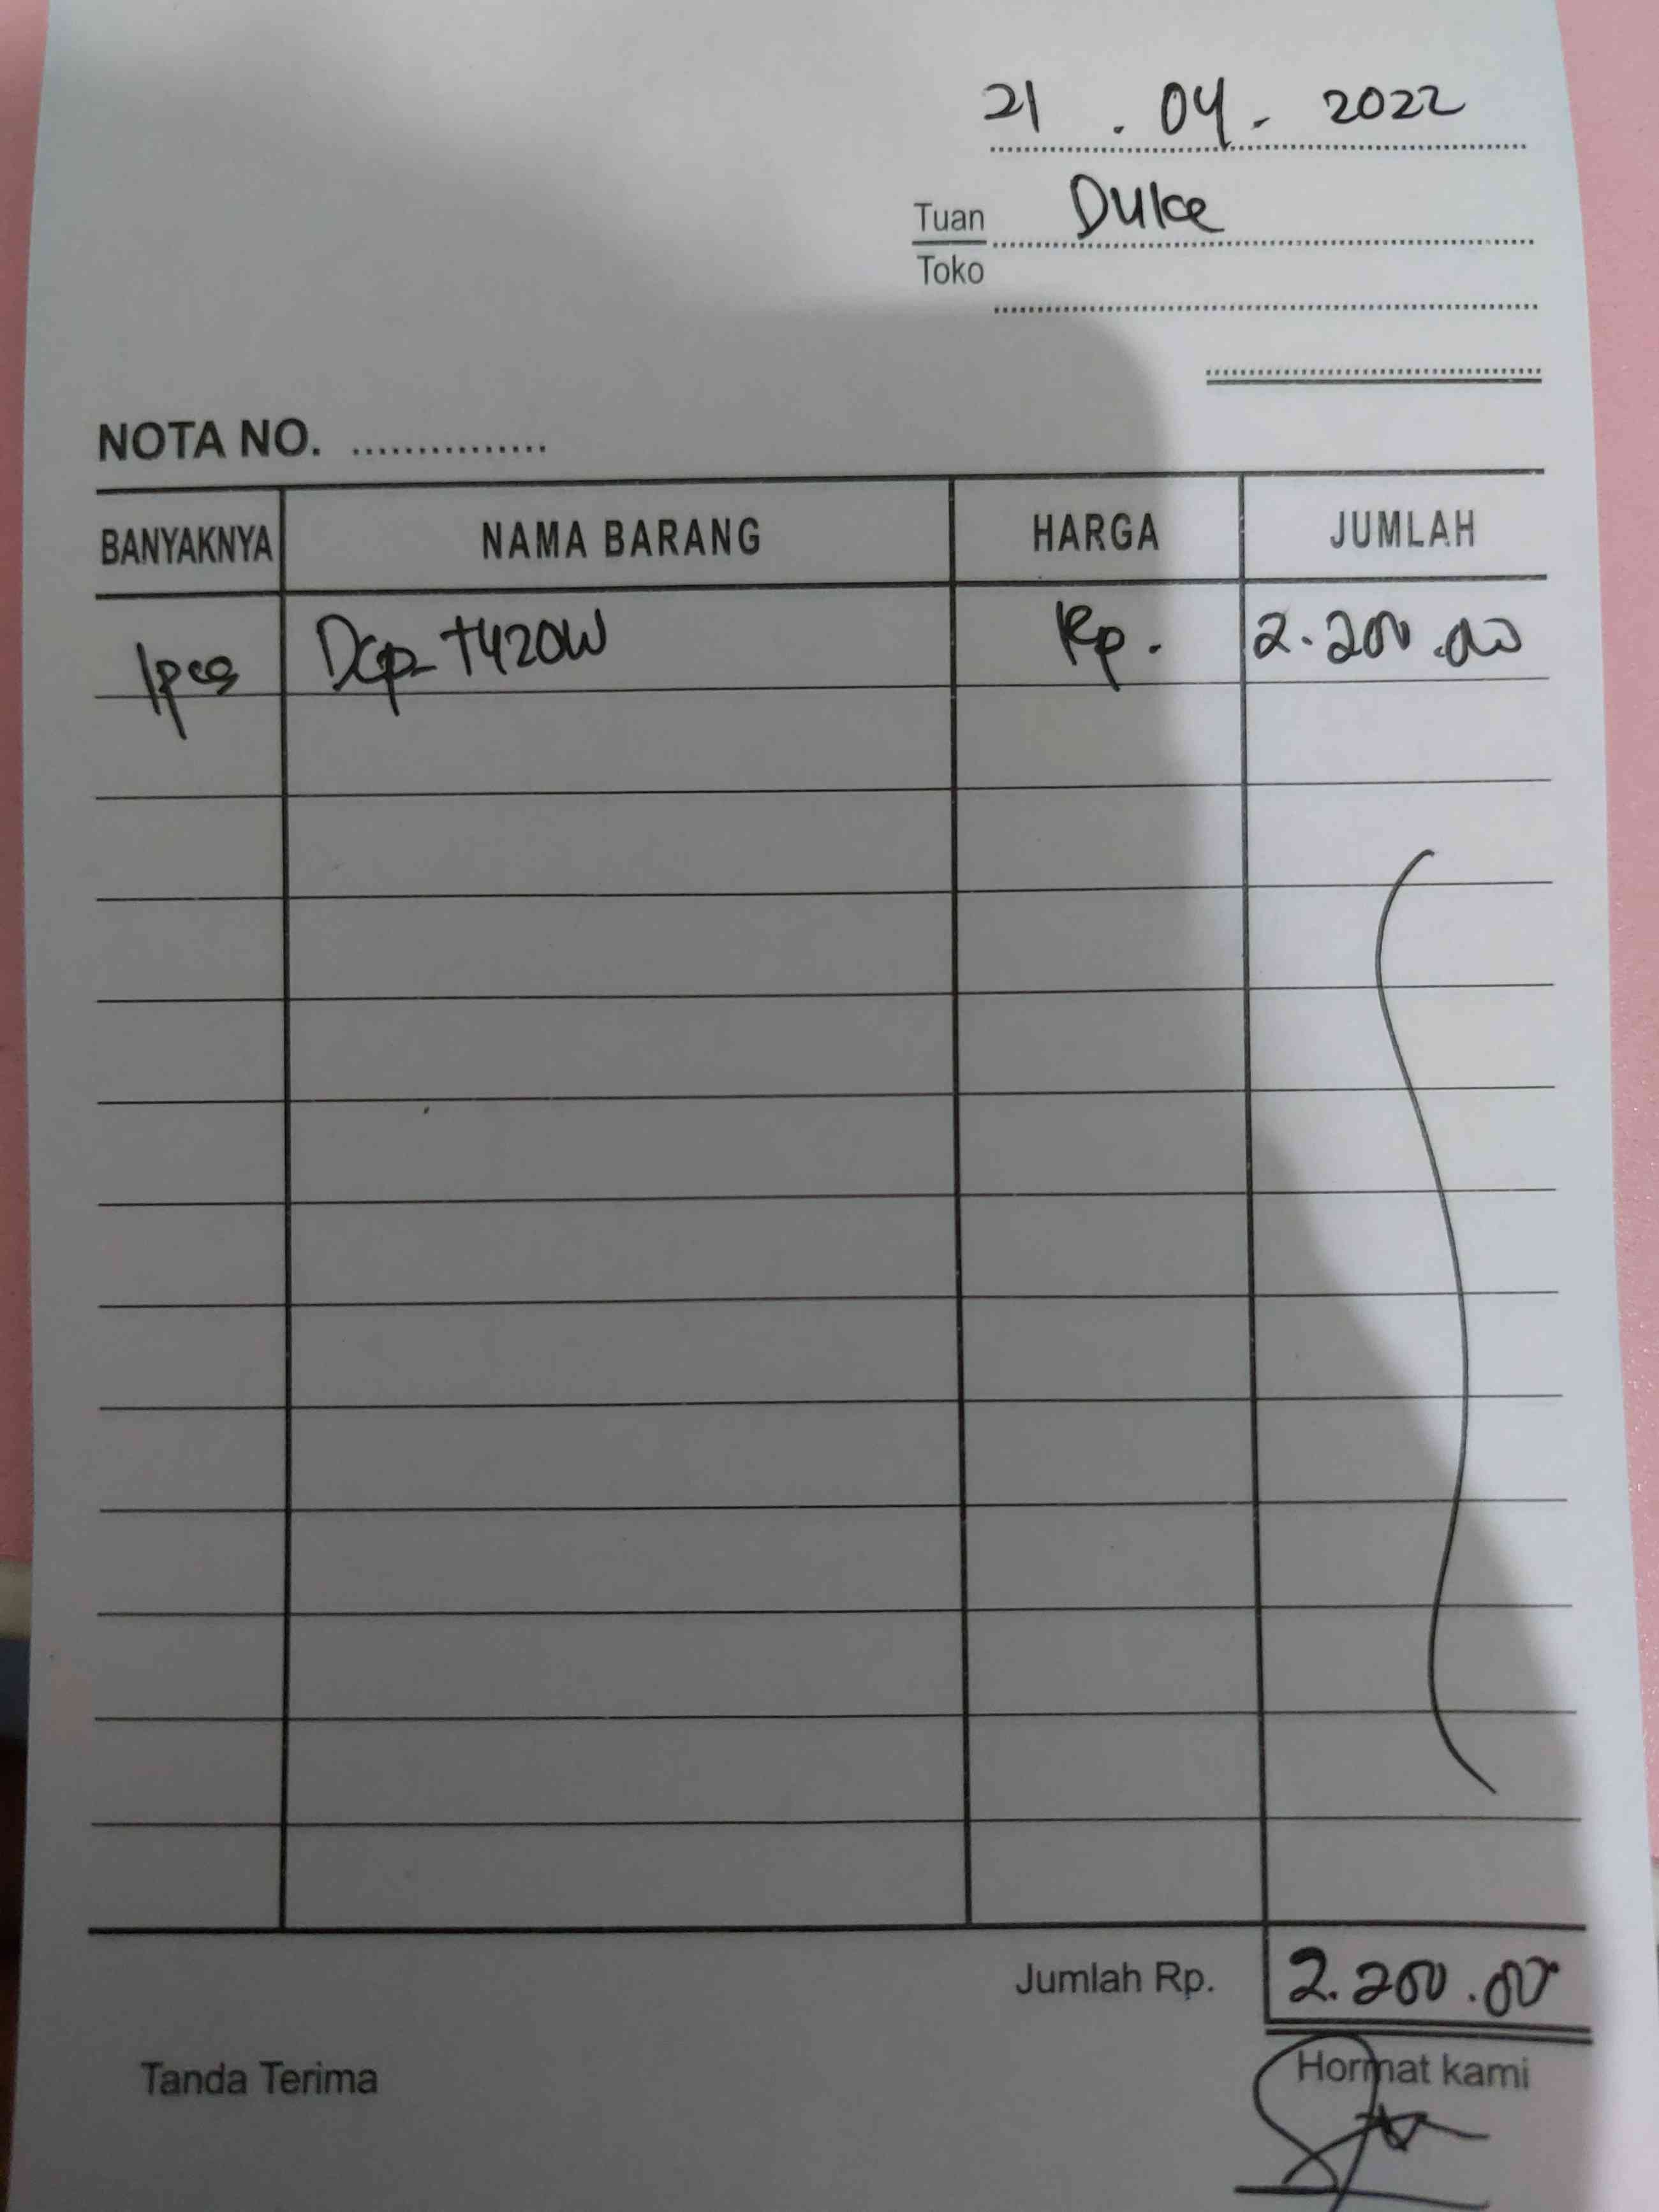 21 . 04 . 2022
Tuan Duke
Toko
NOTA NO. ...............
BANYAKNYA NAMA BARANG HARGA JUMLAH
1pcs Dcp-t420W Rp. 2.200.000
Jumlah Rp. 2.200.000
Tanda Terima Hormat kami